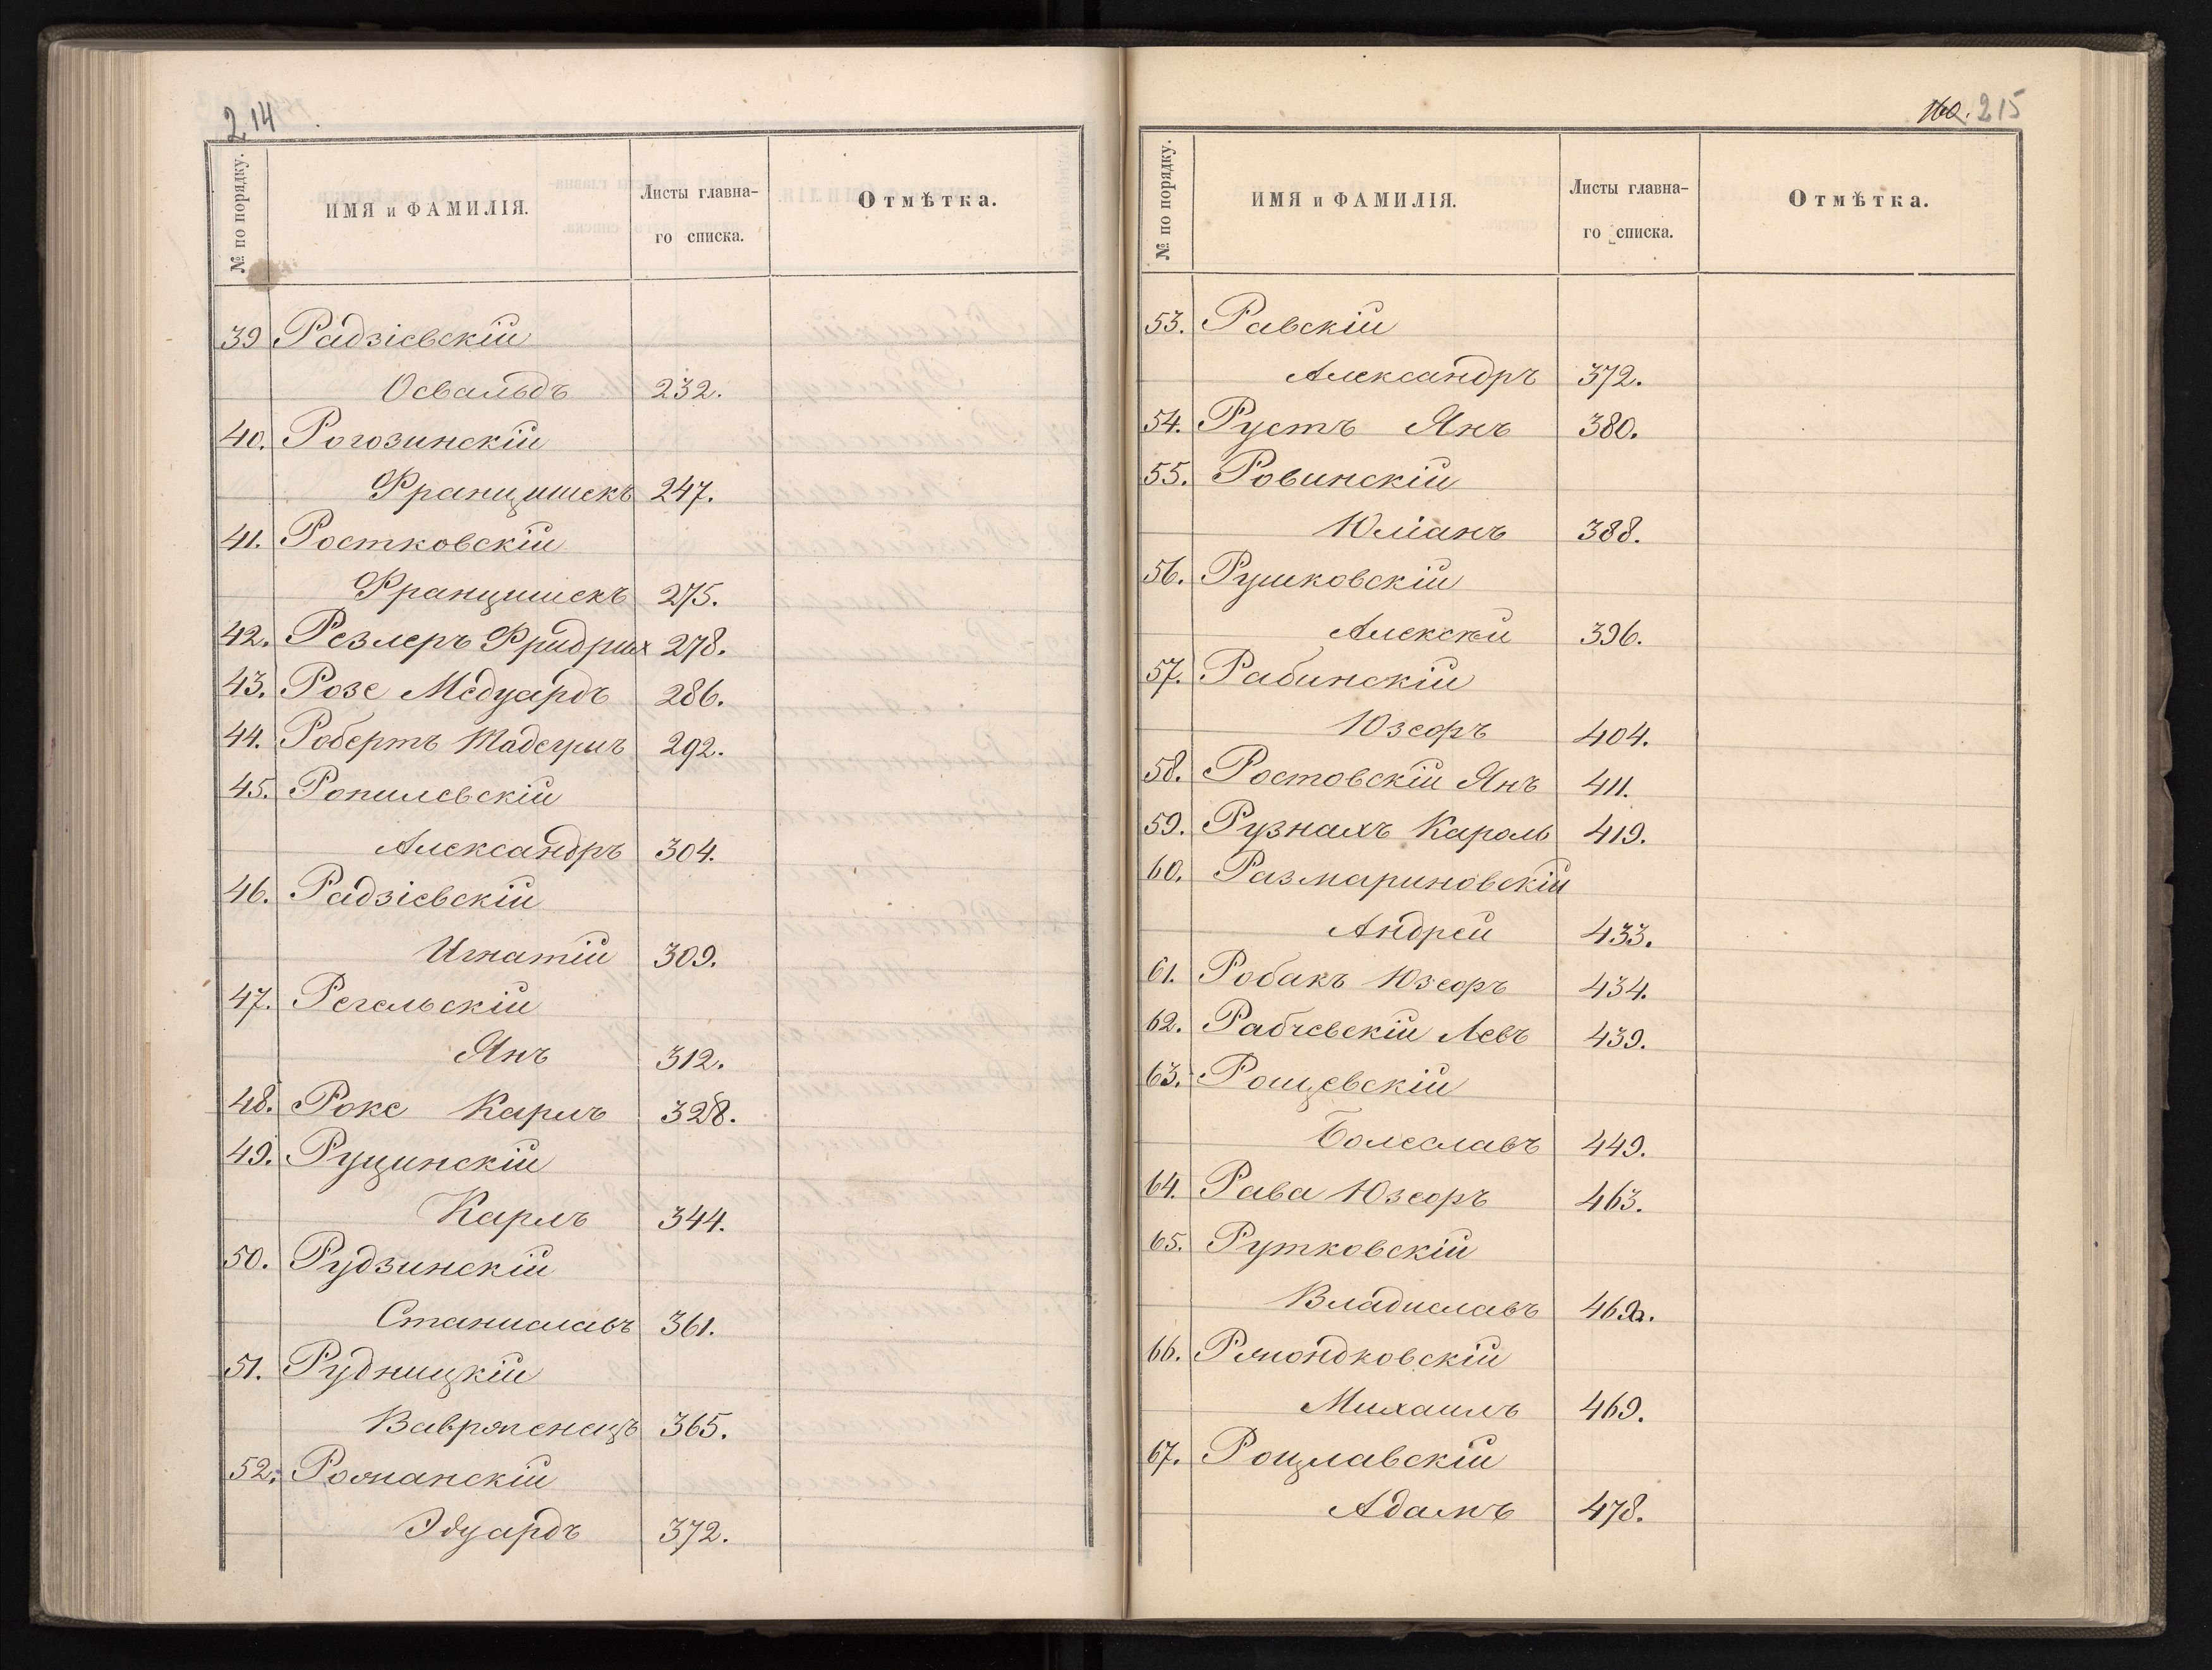 214
№ по порядку. ИМЯ и ФАМИЛІЯ. Листы главна-
го списка. Отмѣтка.
39 Радзіевскій
Освальдъ 232.
40. Рогозинскій
Францишекъ 247.
41. Ростковскій
Францишекъ 275.
42. Резлеръ Фридрих 278.
43. Розе Медуардъ 286.
44. Робертъ Тадеушъ 292.
45. Ропилевскій
Александръ 304.
46. Радзіевскій
Игнатій 309.
47. Регельскій
Янъ 312.
48. Роке Карлъ 328.
49. Руцинскій
Карлъ 344.
50. Рудзинскій
Станиславъ 361.
51. Рудницкій
Ваврженецъ 365.
52. Рожанскій
Эдуардъ 372.
160. 215
№ по порядку. ИМЯ и ФАМИЛІЯ. Листы главна-
го списка. Отмѣтка.
53. Равскій
Александръ 372.
54. Рустъ Янъ 380.
55. Ровинскій
Юліанъ 388.
56. Рушковскій
Алексѣй 396.
57. Рабинскій
Юзефъ 404.
58. Ростовскій Янъ 411.
59. Рузнахъ Кароль 419.
60. Размариновскій
Андрей 433.
61. Робакъ Юзефъ 434.
62. Рабчевскій Левъ 439.
63. Рощевскій
Болеславъ 449.
64. Рава Юзефъ 463.
65. Рутковскій
Владиславъ
66. Ржондковскій
Михаилъ 469.
67. Роцлавскій
Адамъ 478.